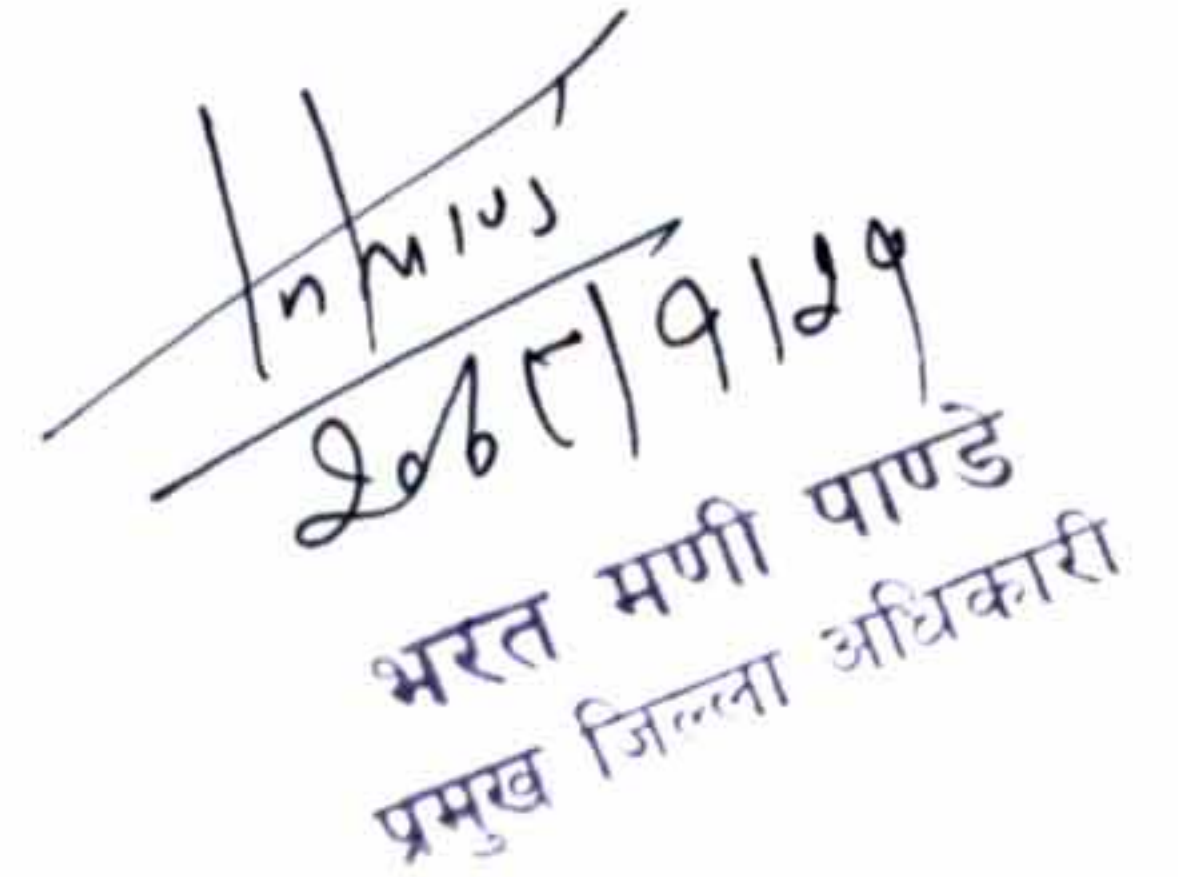 २०७८/१/२१
भरत मणी पाण्डे
प्रमुख जिल्ला अधिकारी